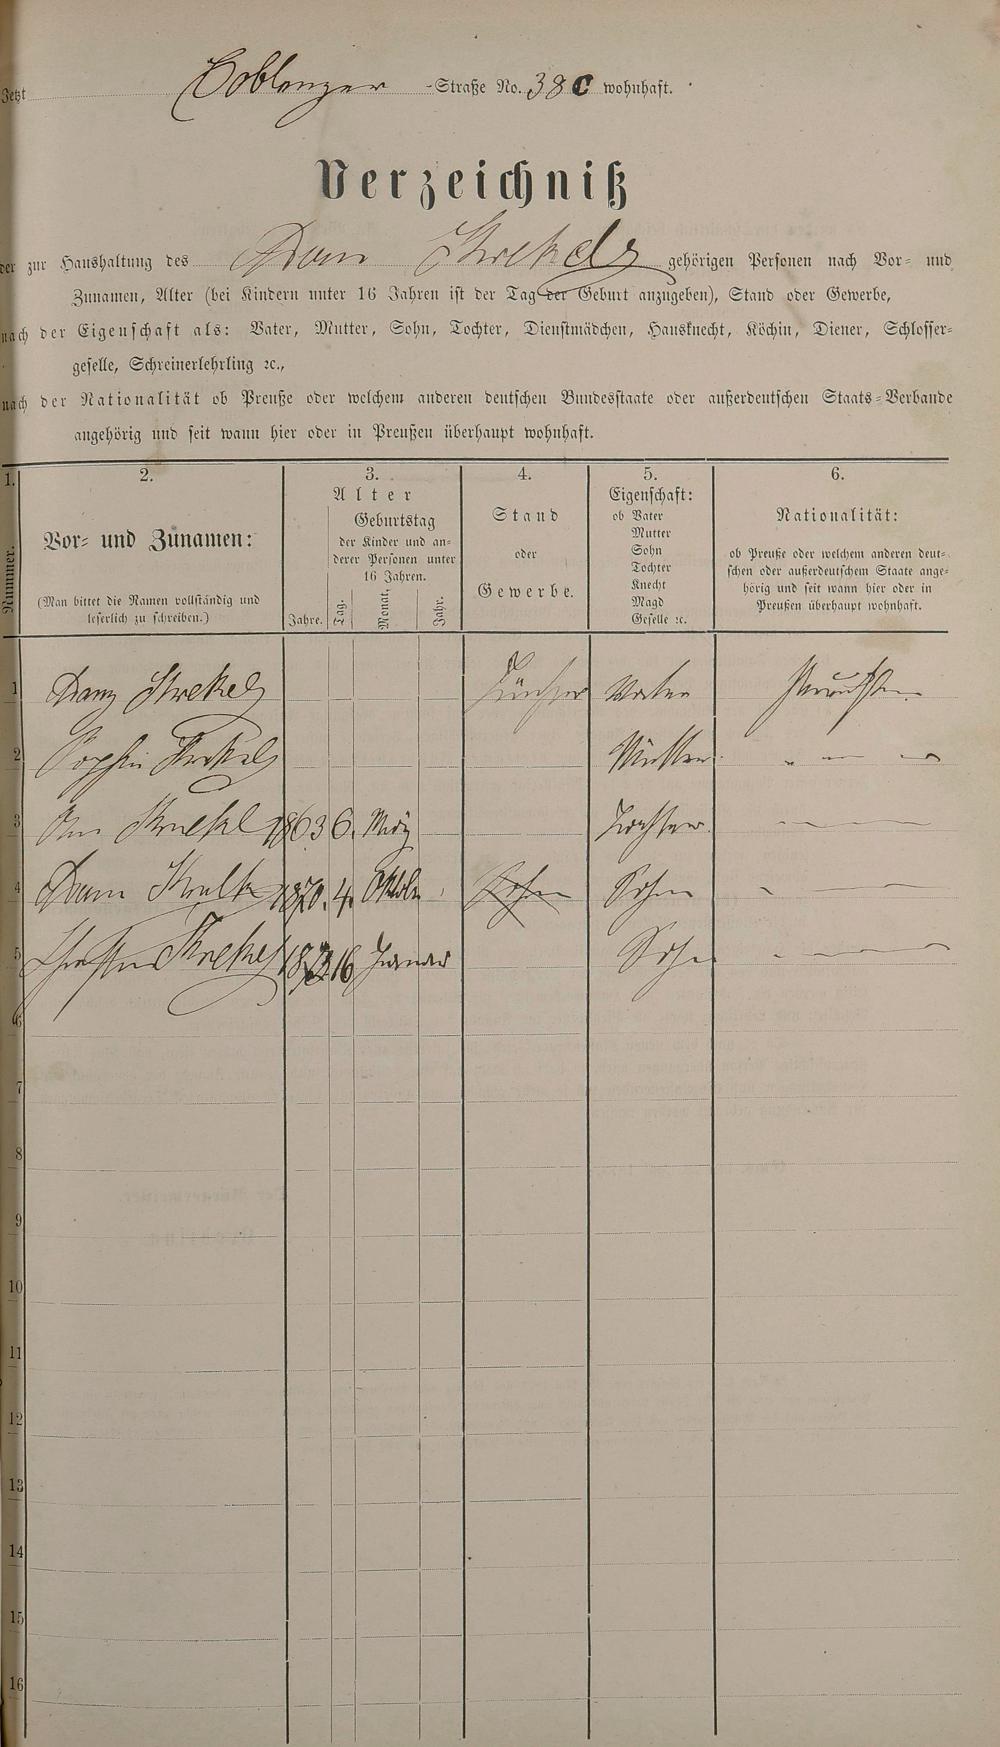 Jetzt Coblenzer -Straße No. 38c wohnhaft.
Verzeichniß
der zur Haushaltung des gehörigen Personen nach Vor- und
Zunamen, Alter (bei Kindern unter 16 Jahren ist der Tag der Geburt anzugeben), Stand oder Gewerbe,
nach der Eigenschaft als: Vater, Mutter, Sohn, Tochter, Dienstmädchen, Hausknecht, Köchin, Diener, Schlosser-
geselle, Schreinerlehrling ꝛc.,
nach der Nationalität ob Preuße oder welchem anderen deutschen Bundesstaate oder außerdeutschen Staats-Verbande
angehörig und seit wann hier oder in Preußen überhaupt wohnhaft.
1. 2. 3. 4. 5. 6.
Nummer.
Vor- und Zunamen:
(Man bittet die Namen vollständig und
leserlich zu schreiben.)
Alter
Geburtstag
der Kinder und an-
derer Personen unter
16 Jahren.
Jahre. Tag. Monat. Jahr.
Stand
oder
Gewerbe.
Eigenschaft:
ob Vater
Mutter
Sohn
Tochter
Knecht
Magd
Geselle ꝛc.
Nationalität:
ob Preuße oder welchem anderen deut-
schen oder außerdeutschem Staate ange-
hörig und seit wann hier oder in
Preußen überhaupt wohnhaft.
1 Vater
2 Sophie Mutter
3 1863 6. Tochter
4 1870. 4. Oktober Sohn Sohn
5 16 Januar Sohn
6
7
8
9
10
11
12
13
14
15
16